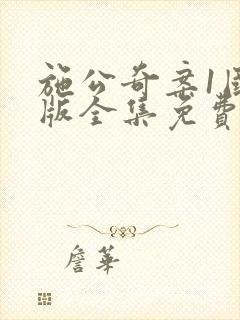 施公奇案1国
版全集免費
詹華